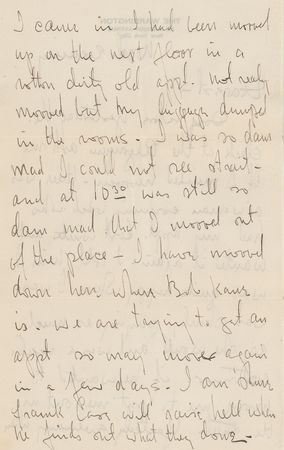 I came in I had been moved
up on the next floor in a
rotton dirty old appt. not realy
moved but my luggage dumped
in the rooms. I was so dam
mad I could not see strait -
and at 10 30 was still so
dam mad that I moved out
of the place - I have moved
down here where Bob Kane
is. we are trying to get an
appt so may move again
in a few days. I am sure
Frank Case will raise hell when
he finds out what they done -